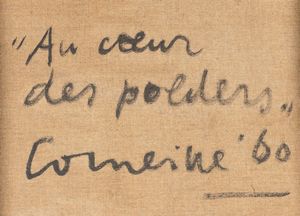 "Au cœur
des polders"
Corneille '60